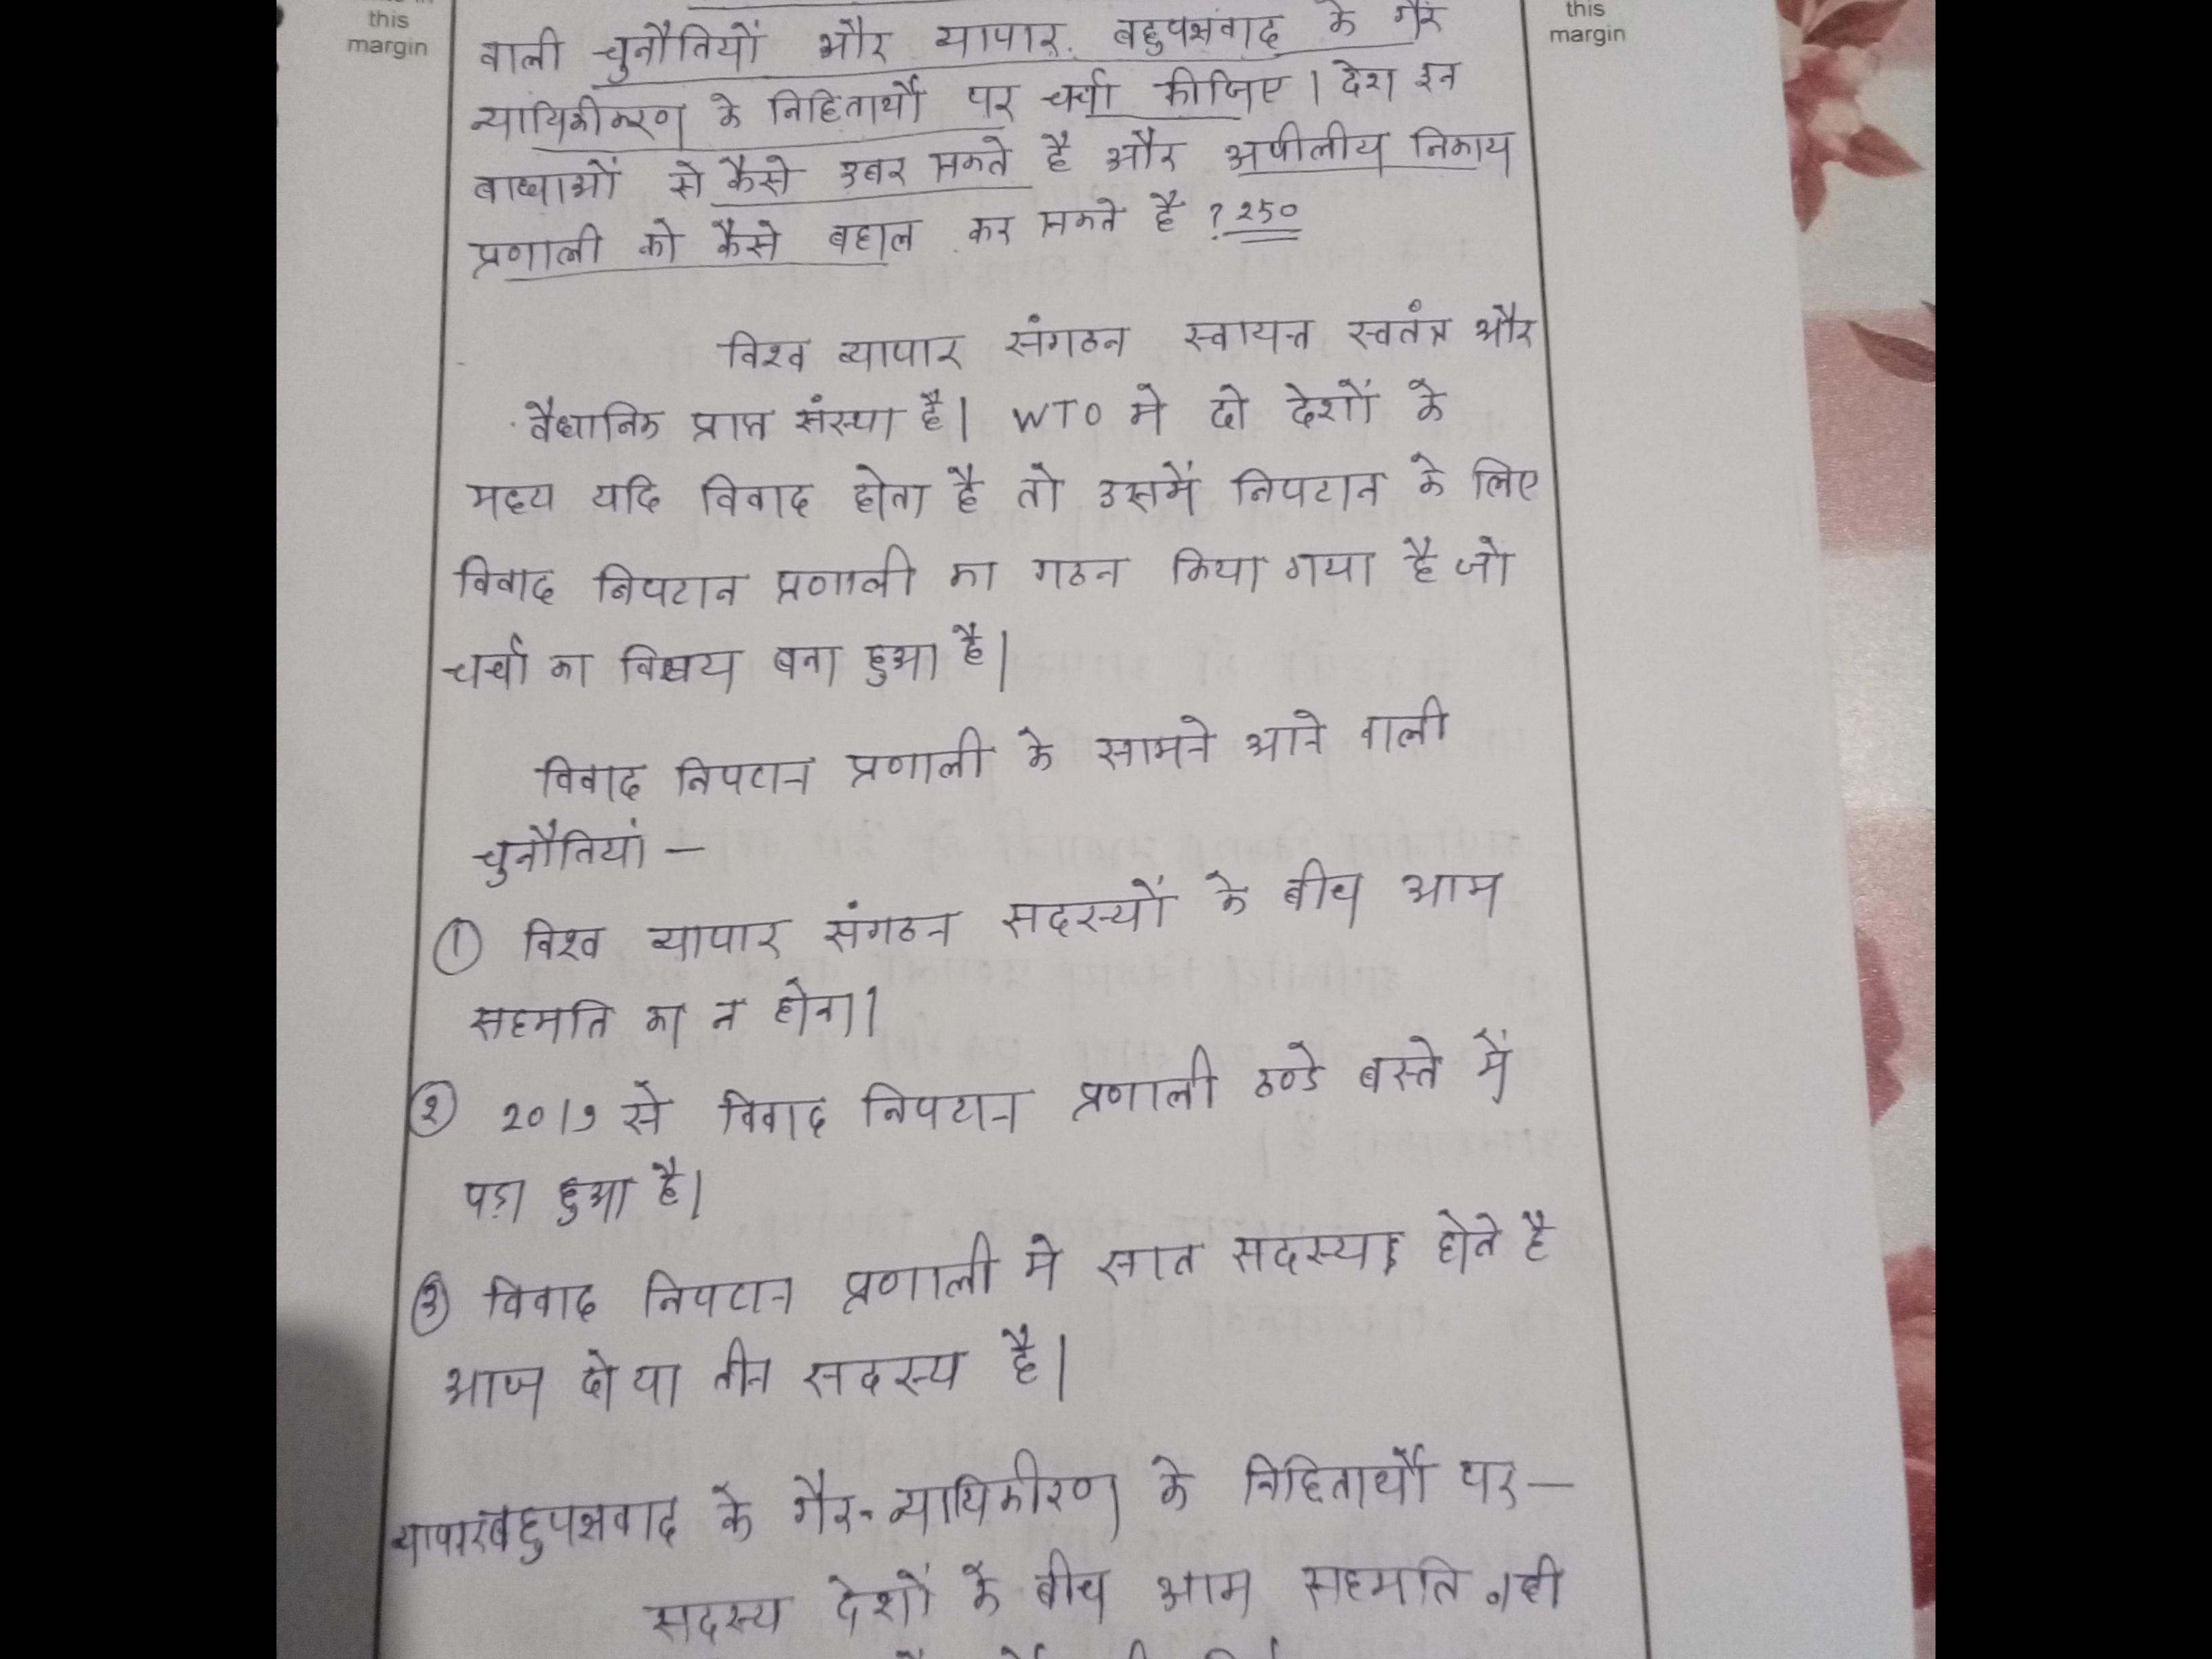 this
margin
this
margin
वाली चुनौतियों और व्यापार बहुपक्षवाद के गैर
न्यायिकीकरण के निहितार्थों पर चर्चा कीजिए। देश इन
बाधाओं से कैसे उबर सकते है और अपीलीय निकाय
प्रणाली को कैसे बहाल कर सकते है ? 250
विश्व व्यापार संगठन स्वायत्त स्वतंत्र और
वैधानिक प्राप्त संस्था है। WTO मे दो देशों के
मध्य यदि विवाद होता है तो उसमें निपटान के लिए
विवाद निपटान प्रणाली का गठन किया गया है जो
चर्चा का विषय बना हुआ है।
विवाद निपटान प्रणाली के सामने आने वाली
चुनौतियां –
① विश्व व्यापार संगठन सदस्यों के बीच आम
सहमति का न होना।
② 2019 से विवाद निपटान प्रणाली ठण्डे बस्ते में
पड़ा हुआ है।
③ विवाद निपटान प्रणाली मे सात सदस्य होते है
आज दो या तीन सदस्य है।
व्यापार बहुपक्षवाद के गैर-न्यायिकीरण के निहितार्थों पर –
सदस्य देशों के बीच आम सहमति नही